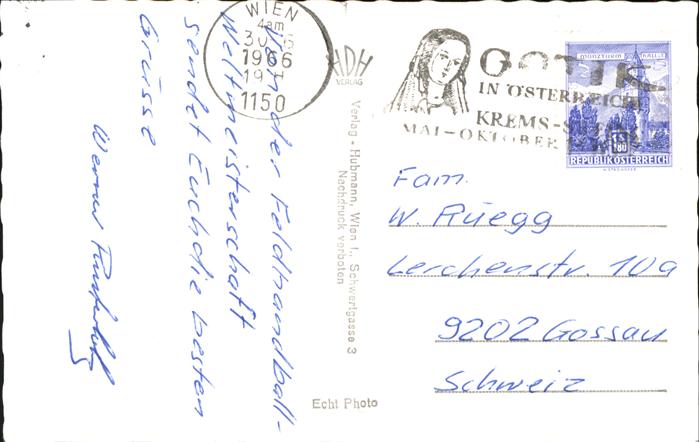 Von der Feldhandball-
Weltmeisterschaft
sendet Euch die besten
Grüsse
Werner
WIEN
1966
1150
HDH
VERLAG
Verlag - Hubmann, Wien I., Schwertgasse 3
Nachdruck verboten
Echt Photo
GOTIK
IN ÖSTERREICH
KREMS-
MAI-OKTOBER
MÜNZTURM HALL I. T.
S 1.80
REPUBLIK ÖSTERREICH
Fam.
W. Rüegg
Lerchenstr. 10a
9202 Gossau
Schweiz